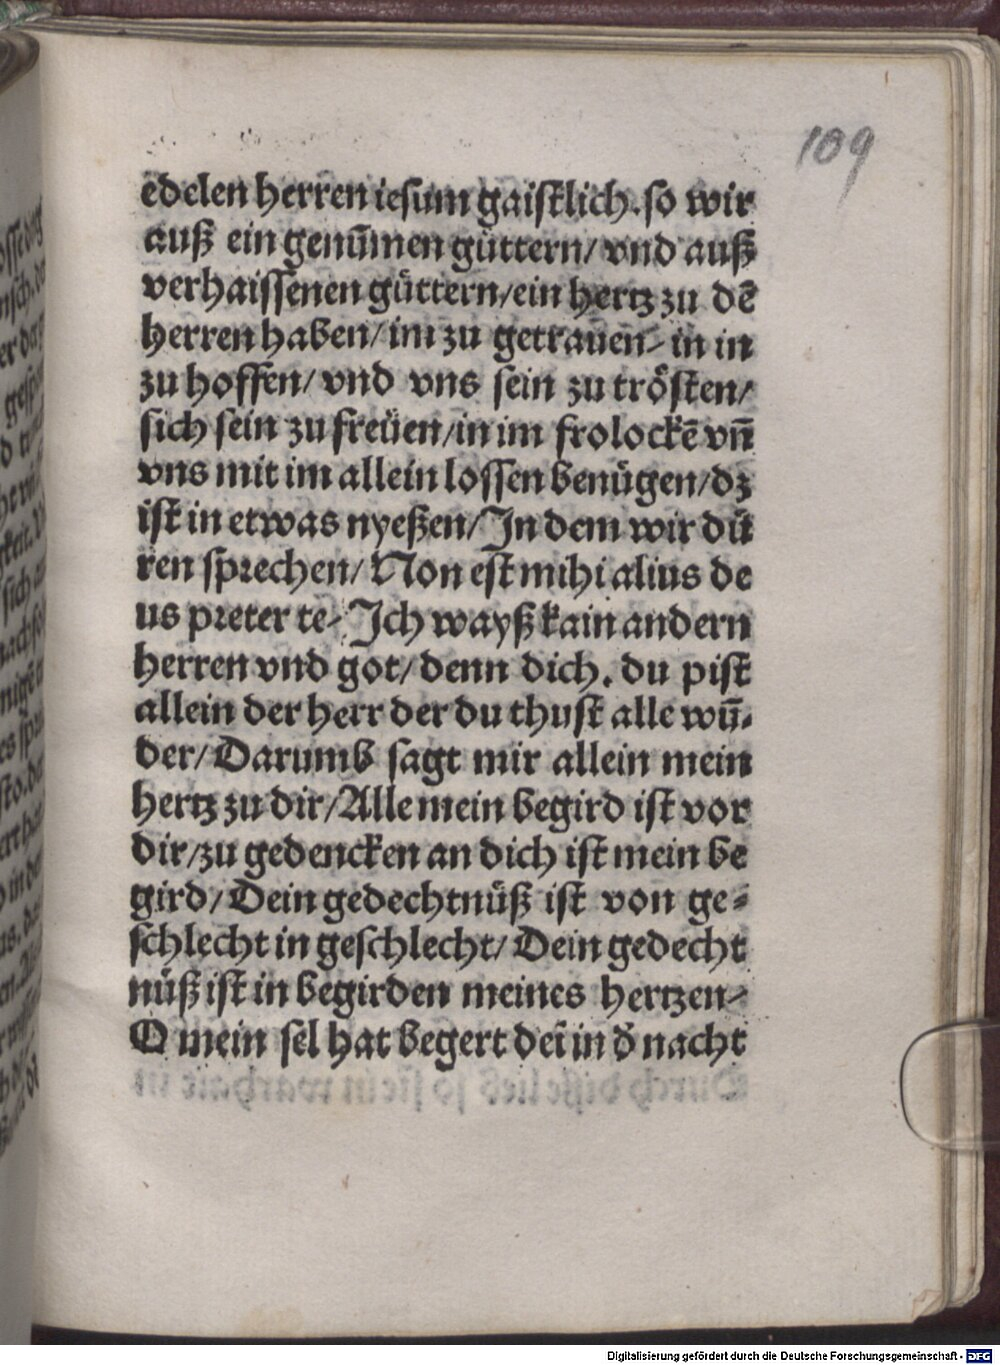 109
edelen herren iesum gaistlich. so wir
auß ein genūmen güttern/ vnd auß
verhaissenen güttern/ ein hertz zu dē
herren haben/ im zu getrauen- in in
zu hoffen/ vnd vns sein zu trösten/
sich sein zu freüen/ in im frolockē vn̄
vns mit im allein lossen benügen/ dz
ist in etwas nyeßen/ Jn dem wir dü
ren sprechen/ Non est mihi alius de
us preter te- Jch wayß kain andern
herren vnd got/ denn dich. du pist
allein der herr der du thust alle wū-
der/ Darumb sagt mir allein mein
hertz zu dir/ Alle mein begird ist vor
dir/ zu gedencken an dich ist mein be
gird/ Dein gedechtnüß ist von ge-
schlecht in geschlecht/ Dein gedecht
nüß ist in begirden meines hertzen-
O mein sel hat begert deī in d̄ nacht
Digitalisierung gefördert durch die Deutsche Forschungsgemeinschaft - DFG